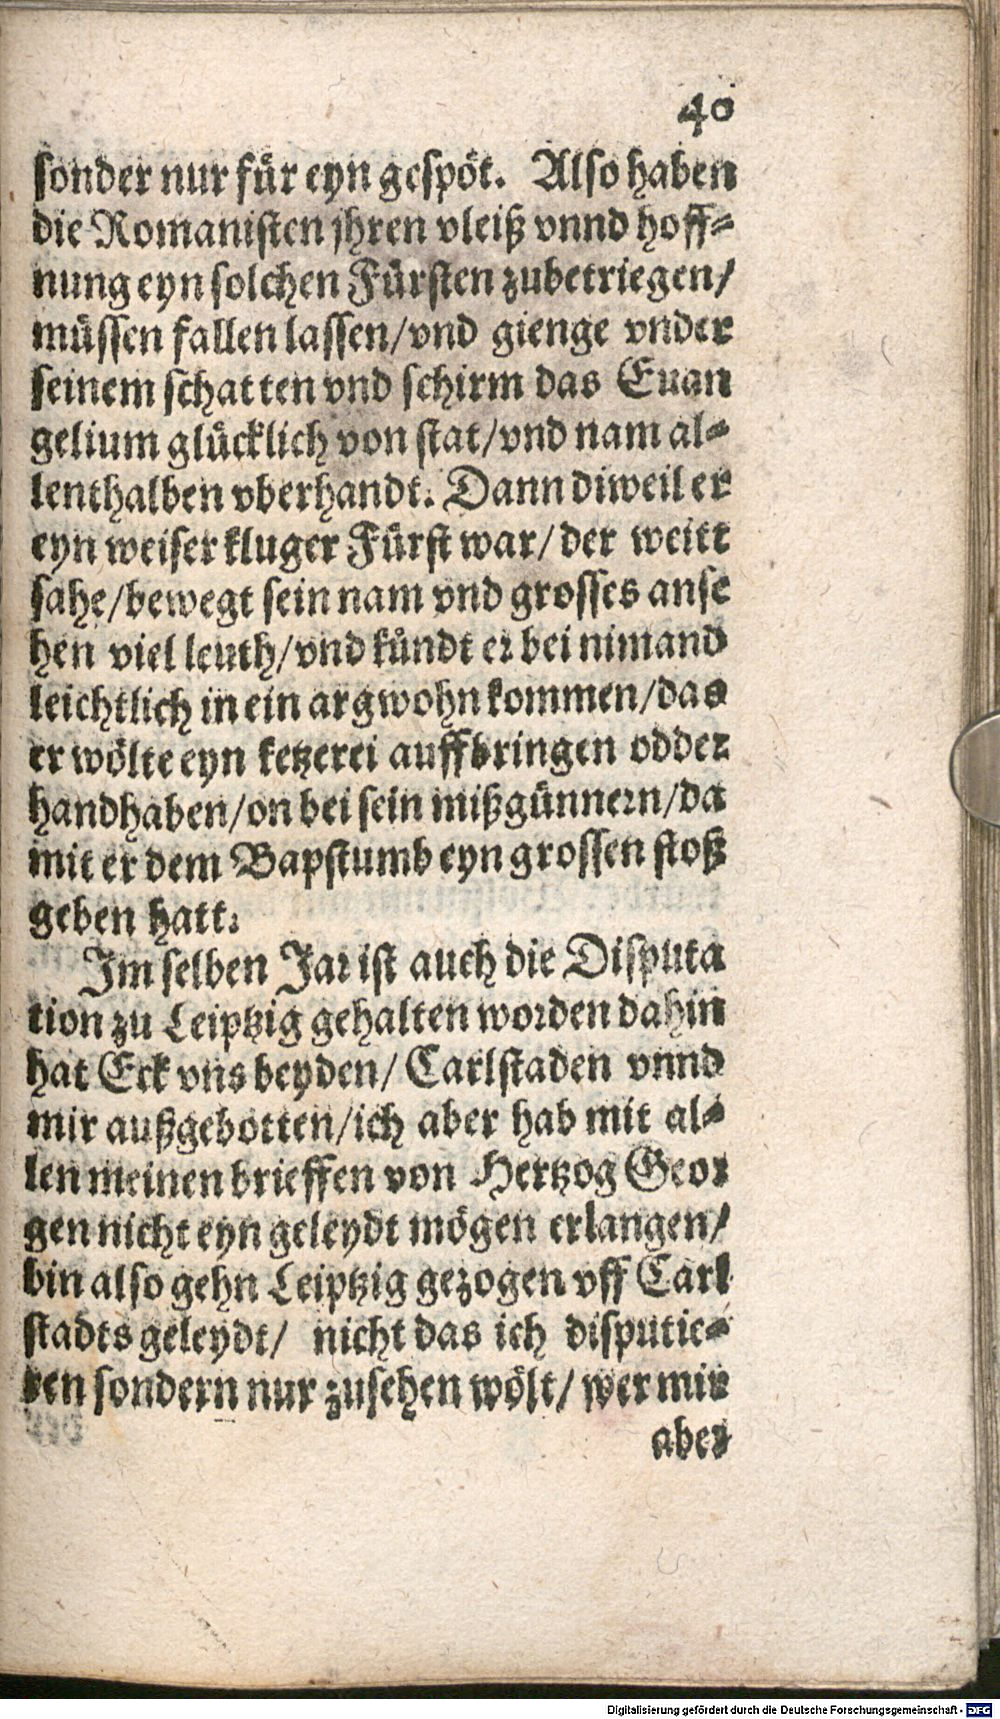 40
sonder nur für eyn gespöt. Also haben
die Romanisten jhren vleiß vnnd hoff-
nung eyn solchen Fürsten zubetriegen/
müssen fallen lassen/vnd gienge vnder
seinem schatten vnd schirm das Euan
gelium glücklich von stat/vnd nam al-
lenthalben vberhandt. Dann diweil er
eyn weiser kluger Fürst war/der weitt
sahe/bewegt sein nam vnd grosses anse
hen viel leuth/vnd kündt er bei nimand
leichtlich in ein argwohn kommen/das
er wölte eyn ketzerei auffbringen odder
handhaben/on bei sein mißgünnern/da
mit er dem Bapstumb eyn grossen stoß
geben hatt.
Im selben Jar ist auch die Disputa
tion zu Leiptzig gehalten worden dahin
hat Eck vns beyden/ Carlstaden vnnd
mir außgebotten/ich aber hab mit al-
len meinen brieffen von Hertzog Geor
gen nicht eyn geleydt mögen erlangen/
bin also gehn Leiptzig gezogen vff Carl
stadts geleydt/ nicht das ich disputie-
ren sondern nur zusehen wölt/wer mir
aber
Digitalisierung gefördert durch die Deutsche Forschungsgemeinschaft - DFG